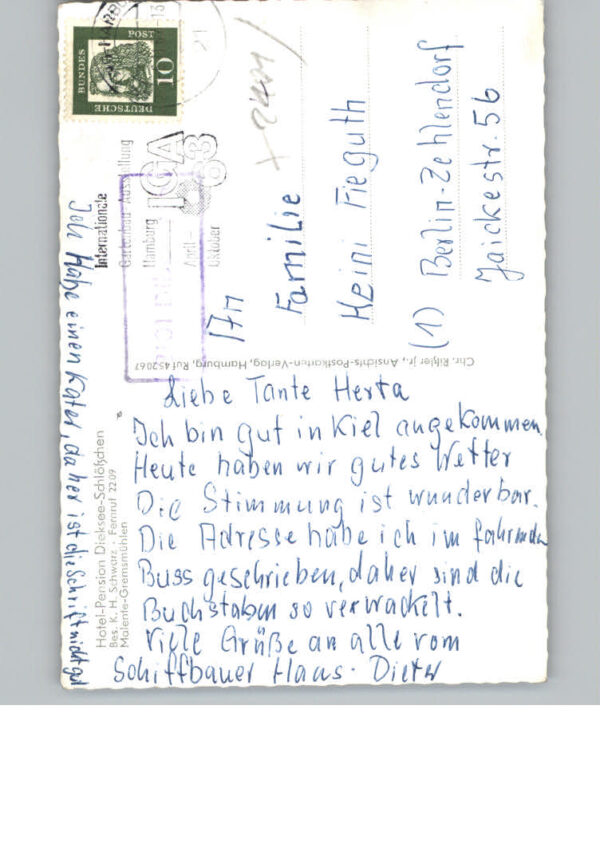 DEUTSCHE
BUNDES
POST
10
Internationale
Gartenbau-Ausstellung
Hamburg
April–
Oktober
IGA
63
An
Familie
Heini Fieguth
(1) Berlin-Zehlendorf
Jaickestr. 56
Chr. Rißler jr., Ansichts-Postkarten-Verlag, Hamburg, Ruf 452067
Hotel-Pension Dieksee-Schlößchen
Bes. K. H. Schwarz · Fernruf 2209
Malente-Gremsmühlen
Liebe Tante Herta
Ich bin gut in Kiel angekommen.
Heute haben wir gutes Wetter
Die Stimmung ist wunderbar.
Die Adresse habe ich im fahrenden
Buss geschrieben, daher sind die
Buchstaben so verwackelt.
Viele Grüße an alle vom
Schiffbauer Haus. Dieter
Ich Habe einen Kater, da her ist die Schrift nicht gut